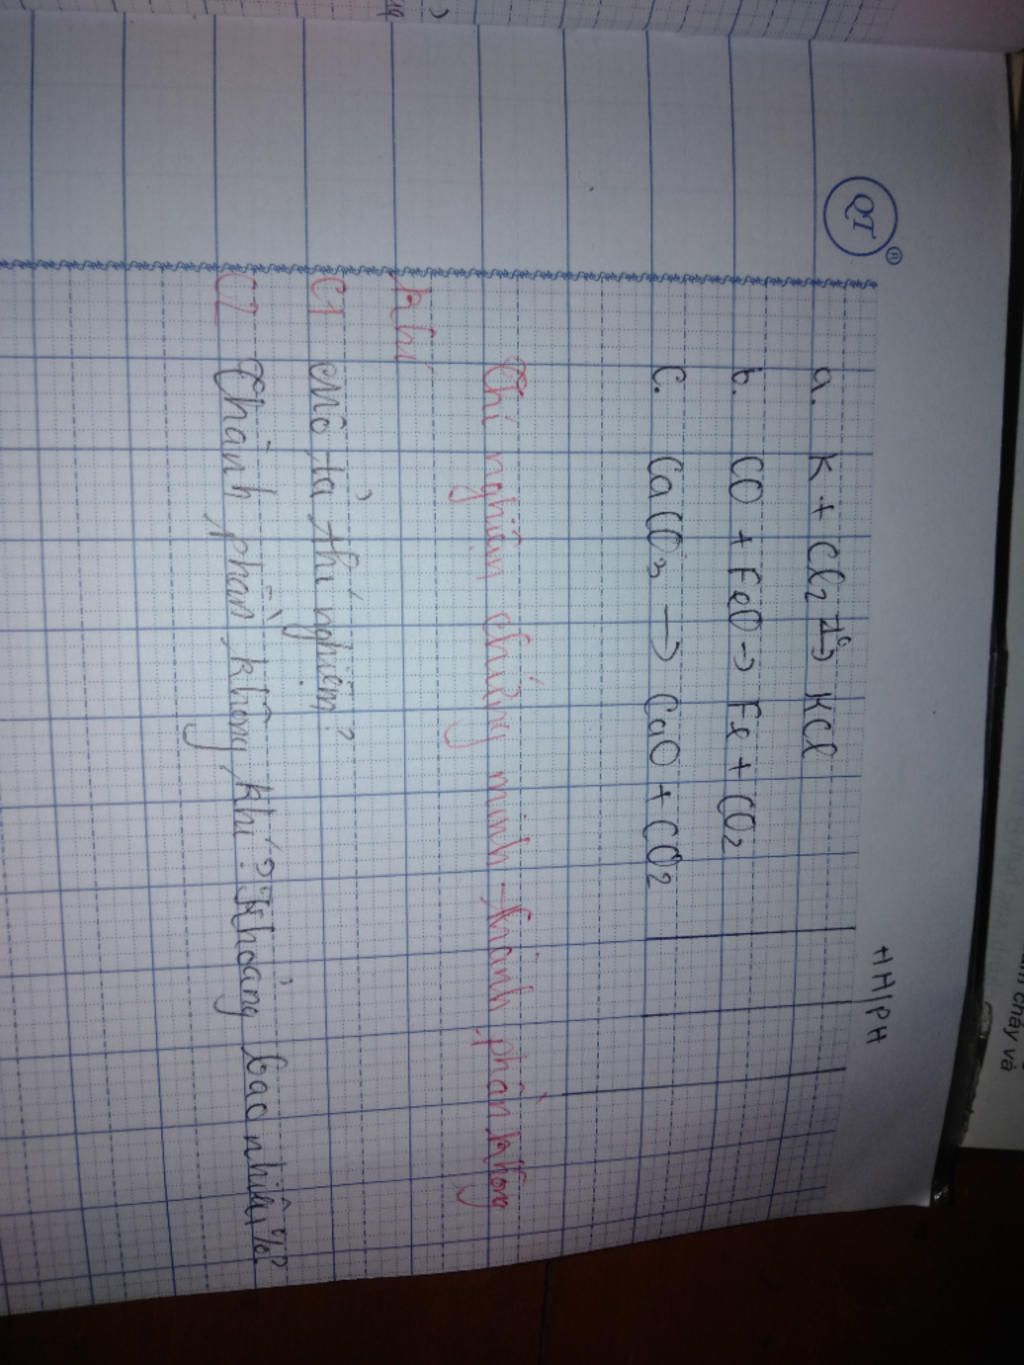 QT ®
HH/PH
a. K + Cl2 t°→ KCl
b. CO + FeO → Fe + CO2
c. CaCO3 → CaO + CO2
Thí nghiệm chứng minh thành phần không
khí
C1 Mô tả thí nghiệm?
C2 Thành phần không khí? Khoảng bao nhiêu %?
chay và